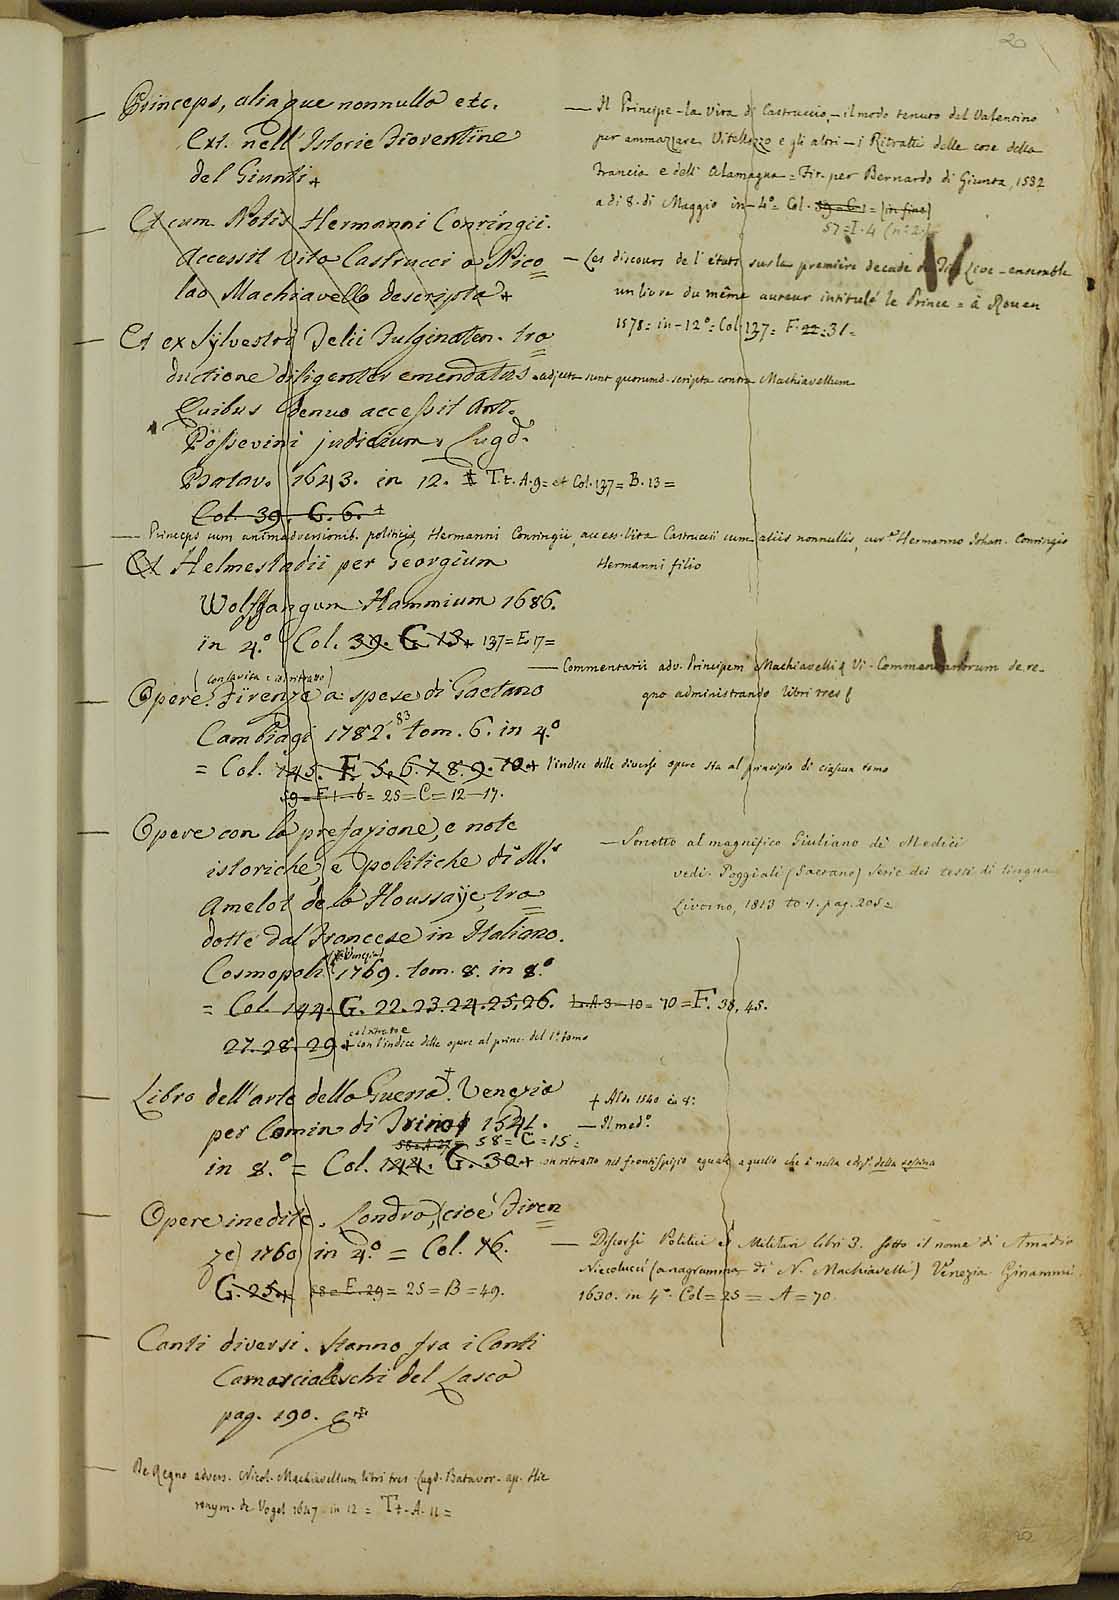 20
Princeps, aliaque nonnulla etc.
Ext. nell' Istorie Fiorentine
del Giunti +
Et cum Notis Hermanni Conringii.
Accessit Vita Castrucci a Nico
lao Machiavello descripta +
Et ex Sylvestri Telii Fulginaten. tra
ductione diligenter emendatus. adjecta sunt quorumd. scripta contra Machiavellum
Quibus denuo accessit Ant.
Possevini judicium. Lugd.
Batav. 1643. in 12. T.t. A. 9 = et Col. 137 = B. 13 =
Col. 39. G. 6. +
— Princeps cum animadversionib. politicis Hermanni Conringii, access. vita Castruccii cum aliis nonnullis, cur.e Hermanno Johan. Conringio
Hermanni filio
Et Helmestadii per Georgium
Wolffangum Hammium 1686.
in 4.° Col. 39. G. 13. + 137 = E 17 =
(con la vita e il ritratto)
Opere. Firenze a spese di Gaetano
Cambiagi 1782. 83 tom. 6. in 4.°
= Col. 145. F. 5. 6. 7. 8. 9. 10. + l'indice delle diverse opere sta al principio di ciascun tomo
59 = F. 1 - 6 = 25 = C = 12 — 17.
Opere con la prefazione, e note
istoriche, e politiche di M.r
Amelot de la Houssaije, tra
dotte dal Francese in Italiano.
Cosmopoli (Venezia) 1769. tom. 8. in 8.°
= Col. 144. G. 22. 23. 24. 25. 26. L. A. 3 — 10 = 70 = F. 38, 45.
27. 28. 29 + col ritratto e con l'indice delle opere al princ. del 1.° tomo
Libro dell'arte della Guerra + Venezia
per Comin di Trino 1541.
58 = A. 27 = 58 = C = 15 =
in 8.° = Col. 144. G. 30. + con ritratto nel frontispizio eguale a quello che è nella ediz.e della
Opere inedite. Londra, (cioè Firen
ze) 1760 in 4.° = Col. 76.
G. 25. + 58 = E. 29 = 25 = B = 49.
Canti diversi. Stanno fra i Canti
Carnascialeschi del Lasca
pag. 190.
De Regno advers. Nicol. Machiavellum libri tres Lugd. Batavor. ap. Hie
ronym. de Vogel 1647 in 12 = Tt. A. 11 =
— Il Principe - la Vita di Castruccio, - il modo tenuto dal Valentino
per ammazzare Vitellozzo e gli altri - i Ritratti delle cose della
Francia e dell' Alamagna = Fir. per Bernardo di Giunta, 1532
a di 8. di Maggio in - 4.° = Col. 39 = G. 1 = (in fine)
57 = I. 4 (n.° 2)
— Les discours de l'état sur la première decade de Tite Live - ensemble
un livre du même auteur intitulé le Prince = à Rouen
1578 = in - 12° = Col. 137 = F. 22 = 31 =
— Commentarii adv. Principem Machiavelli ( Vi. Commentariorum de re-
gno administrando libri tres (
— Sonetto al magnifico Giuliano de' Medici
vedi. Poggiali (Gaetano) Serie dei testi di lingua
Livorno, 1813 to. 1. pag. 205 =
+ Ald. 1540 in 8.
— Il med.°
— Discorsi Politici e Militari libri 3. sotto il nome di Amadio
Niecolucci (anagramma di N. Machiavelli) Venezia Ginammi
1630. in 4.° Col = 25 = A = 70
20